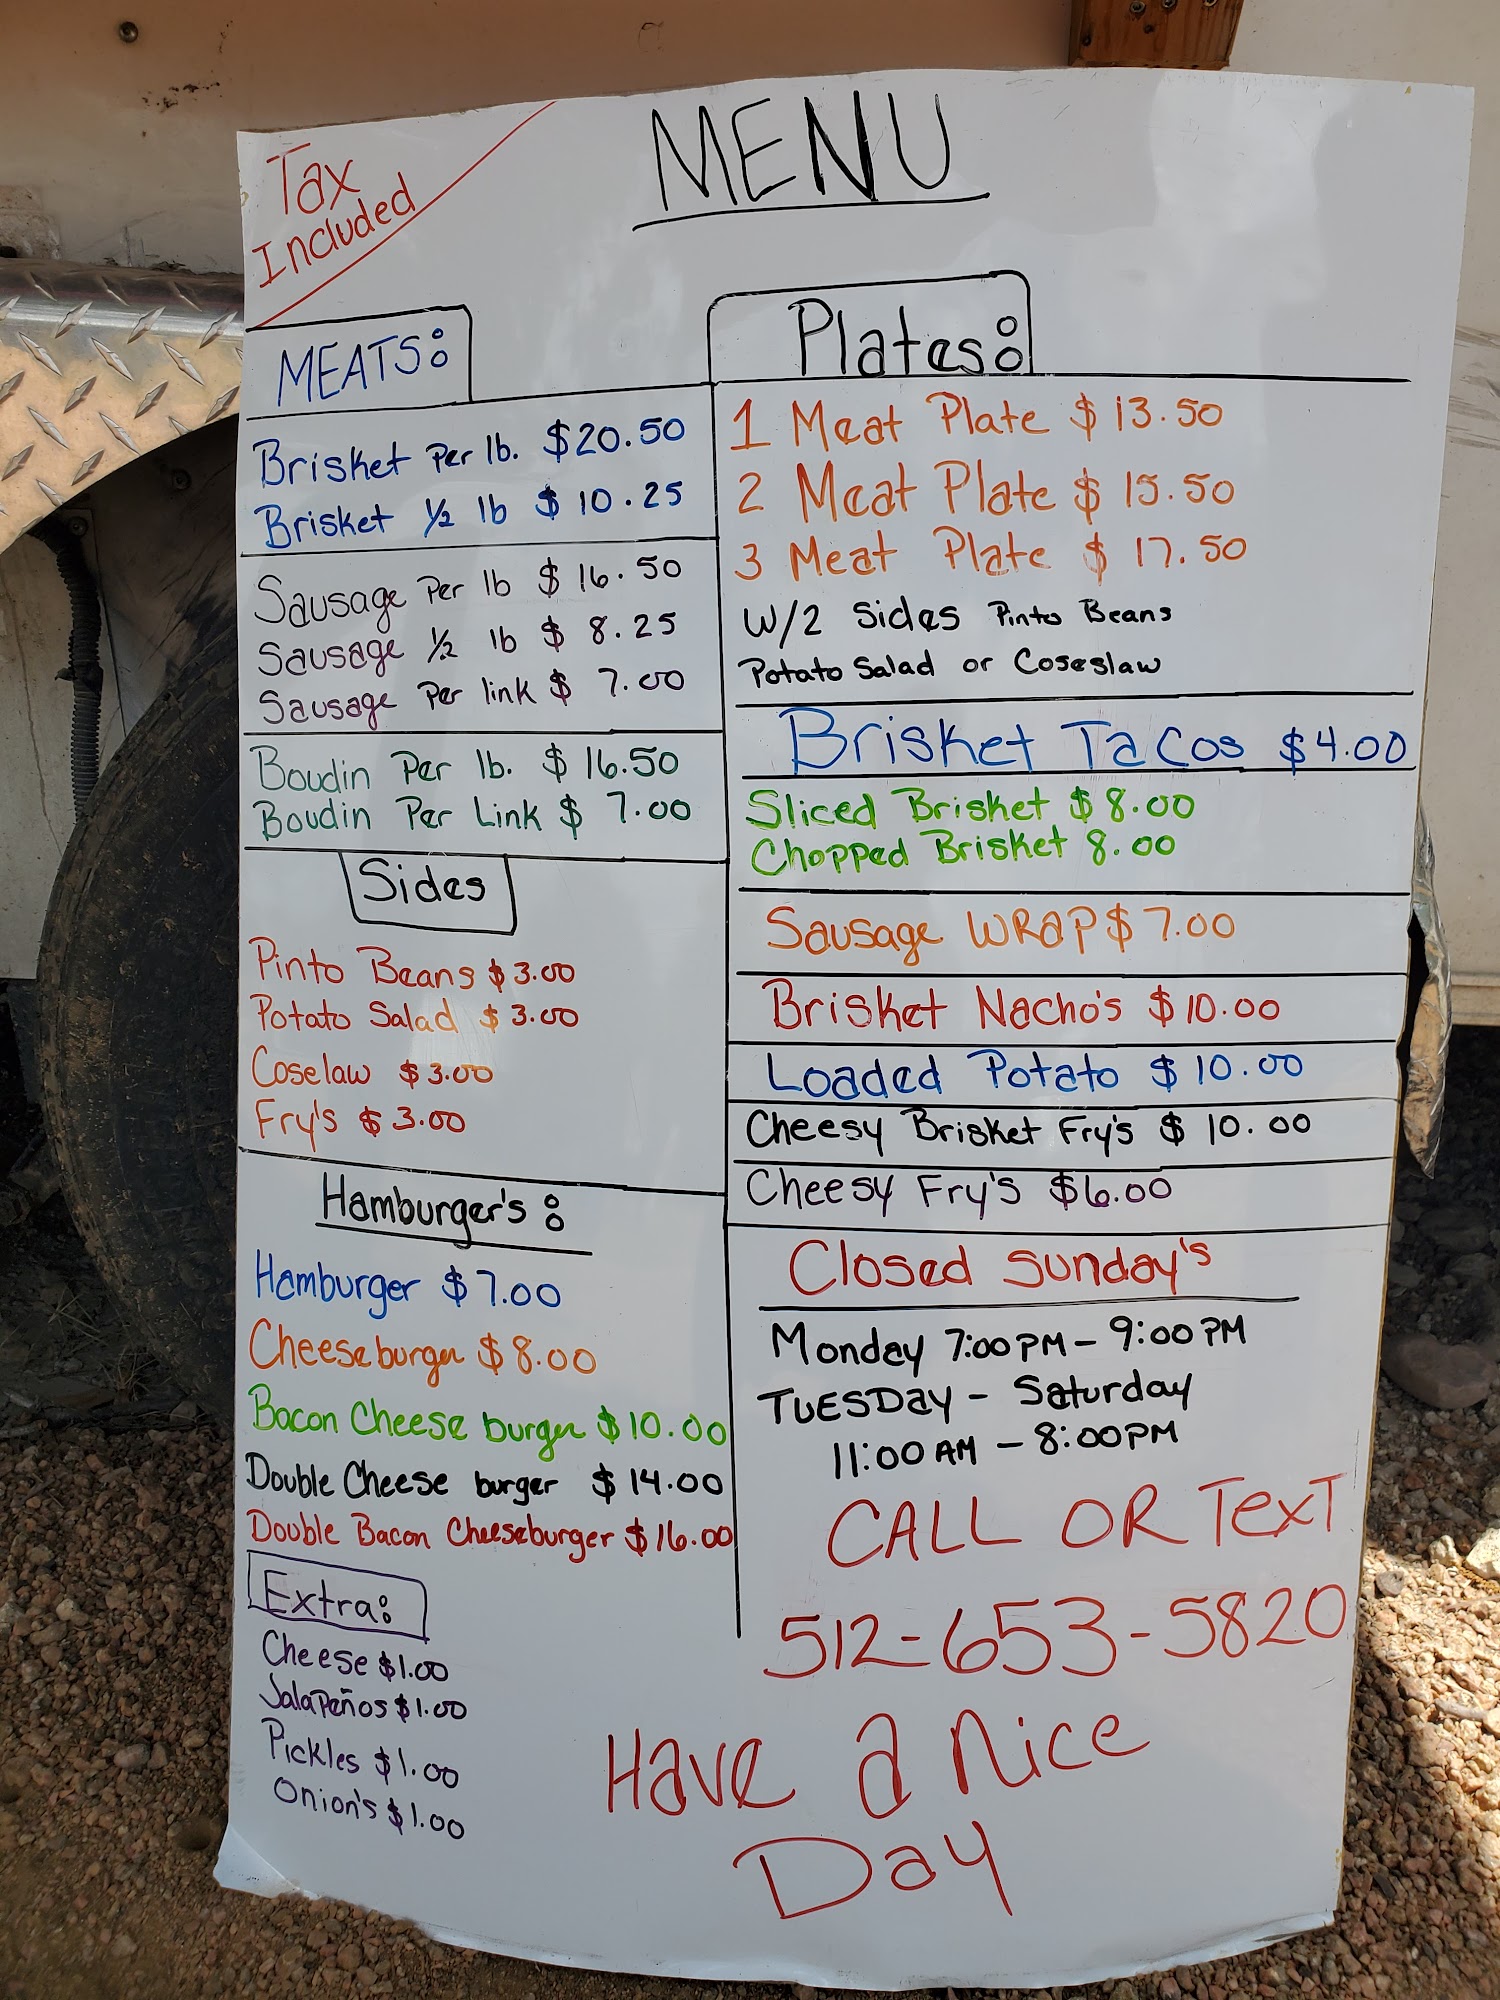 MENU
Tax
Included
MEATS:
Brisket Per lb. $20.50
Brisket ½ lb $10.25
Sausage Per lb $16.50
Sausage ½ lb $8.25
Sausage Per link $7.00
Boudin Per lb. $16.50
Boudin Per Link $7.00
Sides
Pinto Beans $3.00
Potato Salad $3.00
Coselaw $3.00
Fry's $3.00
Hamburger's:
Hamburger $7.00
Cheeseburger $8.00
Bacon Cheese burger $10.00
Double Cheese burger $14.00
Double Bacon Cheeseburger $16.00
Extra:
Cheese $1.00
JalaPeños $1.00
Pickles $1.00
Onion's $1.00
Plates:
1 Meat Plate $13.50
2 Meat Plate $15.50
3 Meat Plate $17.50
W/2 Sides Pinto Beans
Potato Salad or Coseslaw
Brisket Tacos $4.00
Sliced Brisket $8.00
Chopped Brisket 8.00
Sausage WRaP $7.00
Brisket Nacho's $10.00
Loaded Potato $10.00
Cheesy Brisket Fry's $10.00
Cheesy Fry's $6.00
Closed Sunday's
Monday 7:00PM - 9:00PM
TUESDay - Saturday
11:00AM - 8:00PM
CALL OR TexT
512-653-5820
Have a nice
Day